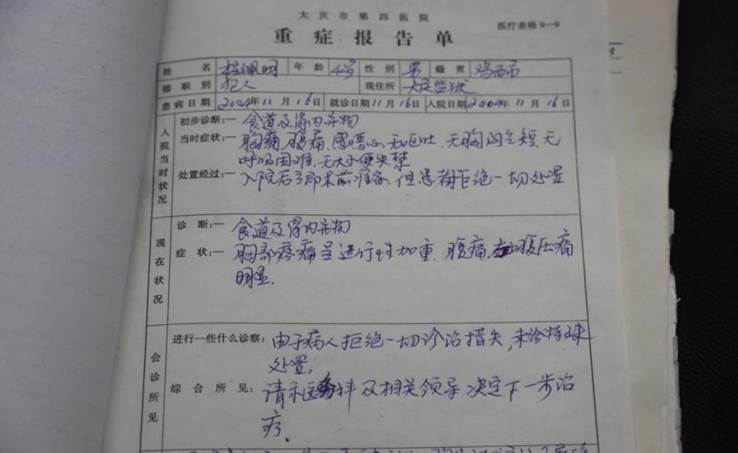 大庆市第四医院
医疗表格9—9
重症报告单
姓名 年龄 性别 男 籍贯 鸡西市
职别 犯人 现住所 大庆监狱
患病日期 2004年11月16日 就诊日期 11月16日 入院日期 2004年11月16日
入院当时状况
初步诊断:— 食道及胃内异物
当时症状:— 胸痛、腹痛、恶心、无呕吐、无胸闷气短、无
呼吸困难、无大小便失禁
处置经过:— 入院后即术前准备,但患者拒绝一切处置
现在状况
诊断:— 食道及胃内异物
症状:— 胸部疼痛呈进行性加重,腹痛、腹压痛
明显.
会诊所见
进行一些什么诊察: 由于病人拒绝一切诊治措失,未给特殊
处置,
综合所见: 请示医务科及相关领导决定下一步治
疗。